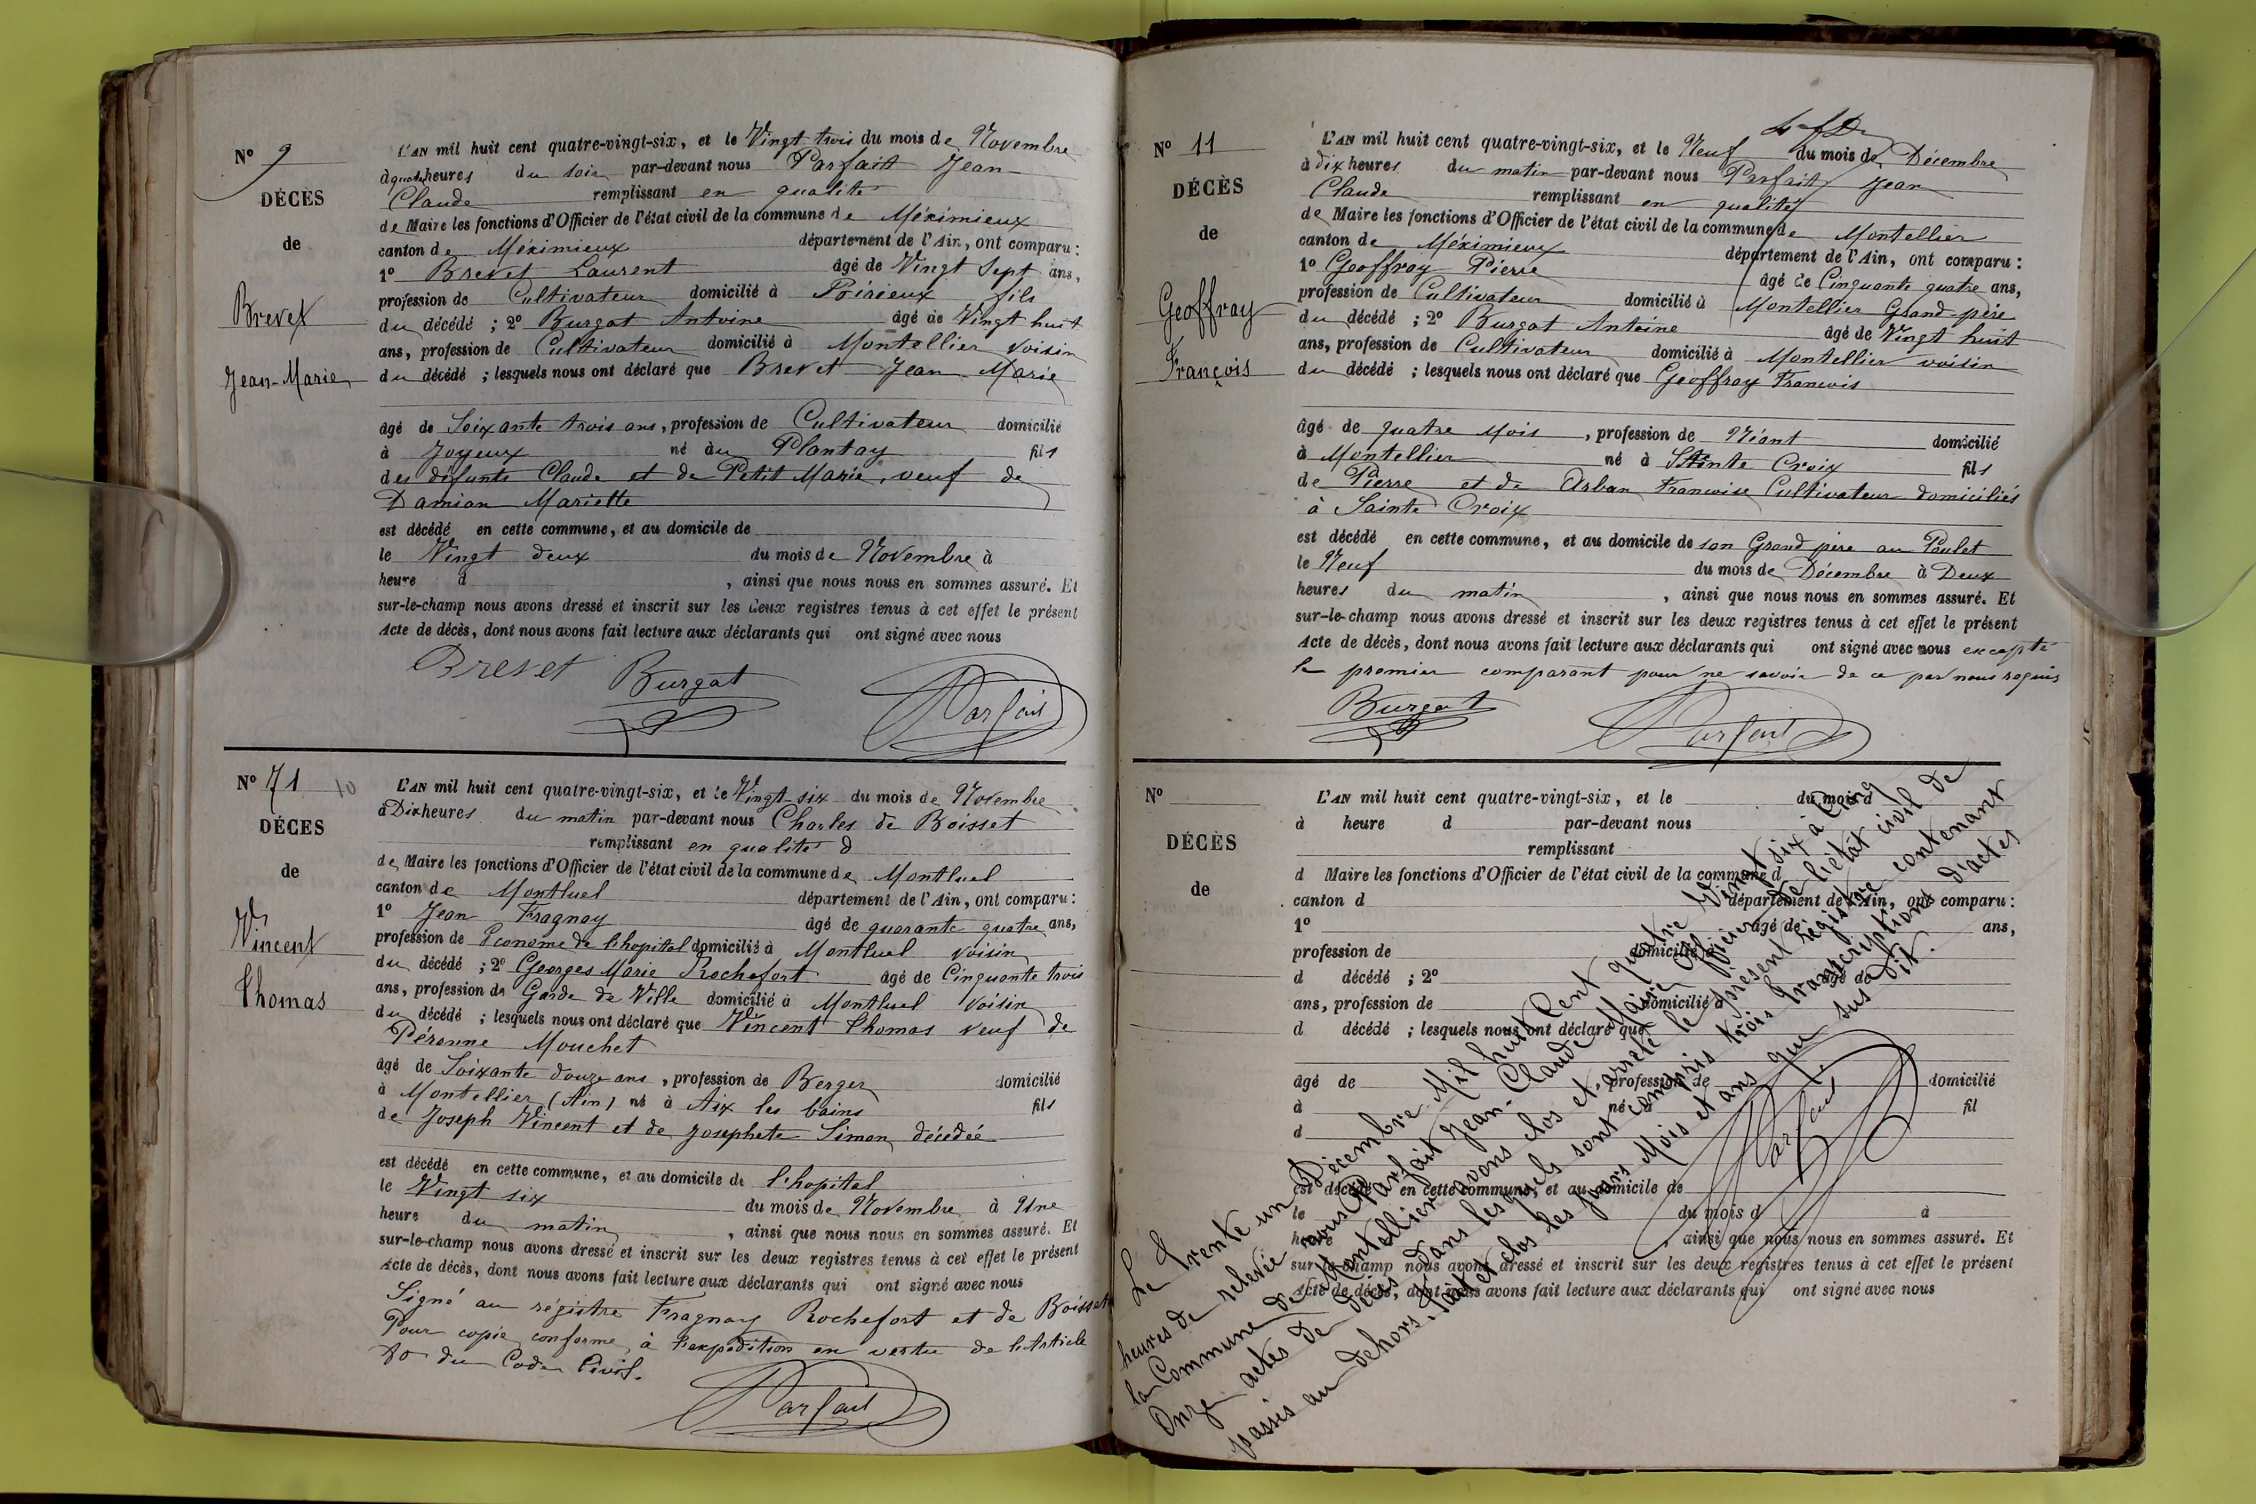 N° 9
DÉCÈS
de
Brevet
Jean-Marie
L'AN mil huit cent quatre-vingt-six, et le Vingt trois du mois de Novembre
à quatre heures du soir par-devant nous Parfait Jean
Claude remplissant en qualité
de Maire les fonctions d'Officier de l'état civil de la commune de Méximieux
canton de Méximieux département de l'Ain, ont comparu :
1° Brevet Laurent âgé de Vingt sept ans,
profession de Cultivateur domicilié à Pérérieux fils
du décédé ; 2° Burgat Antoine âgé de Vingt huit
ans, profession de Cultivateur domicilié à Montellier voisin
du décédé ; lesquels nous ont déclaré que Brevet Jean Marie
âgé de Soixante trois ans, profession de Cultivateur domicilié
à Joyeux né au Plantay fils
des défunts Claude et de Petit Marie, veuf de
Damian Mariette
est décédé en cette commune, et au domicile de
le Vingt deux du mois de Novembre à
heure d , ainsi que nous nous en sommes assuré. Et
sur-le-champ nous avons dressé et inscrit sur les deux registres tenus à cet effet le présent
Acte de décès, dont nous avons fait lecture aux déclarants qui ont signé avec nous
Brevet Burgat Parfait
N° 71 10
DÉCES
de
Vincent
Thomas
L'AN mil huit cent quatre-vingt-six, et le Vingt-six du mois de Novembre
à Dix heures du matin par-devant nous Charles de Boisset
remplissant en qualité d
de Maire les fonctions d'Officier de l'état civil de la commune de Montluel
canton de Montluel département de l'Ain, ont comparu :
1° Jean Fragnay âgé de quarante quatre ans,
profession de Econome de l'hopital domicilié à Montluel voisin
du décédé ; 2° Georges Marie Rochefort âgé de Cinquante trois
ans, profession de Garde de Ville domicilié à Montluel voisin
du décédé ; lesquels nous ont déclaré que Vincent Thomas veuf de
Péronne Mouchet
âgé de Soixante douze ans, profession de Berger domicilié
à Montellier (Ain) né à Aix les bains fils
de Joseph Vincent et de Josephete Simon décédée
est décédé en cette commune, et au domicile de l'hopital
le Vingt six du mois de Novembre à Une
heure du matin , ainsi que nous nous en sommes assuré. Et
sur-le-champ nous avons dressé et inscrit sur les deux registres tenus à cet effet le présent
Acte de décès, dont nous avons fait lecture aux déclarants qui ont signé avec nous
Signé au régistre Fragnay Rochefort et de Boisset
Pour copie conforme à l'expédition en vertu de l'Article
80 du Code Civil.
Parfait
N° 11
DÉCÈS
de
Geoffray
François
L'AN mil huit cent quatre-vingt-six, et le Neuf du mois de Décembre
à dix heures du matin par-devant nous Parfait Jean
Claude remplissant en qualité
de Maire les fonctions d'Officier de l'état civil de la commune de Montellier
canton de Méximieux département de l'Ain, ont comparu :
1° Geoffray Pierre âgé de Cinquante quatre ans,
profession de Cultivateur domicilié à Montellier Grand-père
du décédé ; 2° Burgat Antoine âgé de Vingt huit
ans, profession de Cultivateur domicilié à Montellier voisin
du décédé ; lesquels nous ont déclaré que Geoffray Francois
âgé de quatre Mois , profession de Néant domicilié
à Montellier né à Sainte Croix fils
de Pierre et de Arban Francoise Cultivateur domiciliés
à Sainte Croix
est décédé en cette commune, et au domicile de son Grand père au Poulet
le Neuf du mois de Décembre à Deux
heures du matin , ainsi que nous nous en sommes assuré. Et
sur-le-champ nous avons dressé et inscrit sur les deux registres tenus à cet effet le présent
Acte de décès, dont nous avons fait lecture aux déclarants qui ont signé avec nous excepté
le premier comparant pour ne savoir de ce par nous requis
Burgat Parfait
N°
DÉCÈS
de
L'AN mil huit cent quatre-vingt-six, et le du mois d
à heure d par-devant nous
remplissant
d Maire les fonctions d'Officier de l'état civil de la commune d
canton d département de l'Ain, ont comparu :
1° âgé de ans,
profession de domicilié à
d décédé ; 2° âgé de
ans, profession de domicilié à
d décédé ; lesquels nous ont déclaré que
âgé de profession de domicilié
à né à fil
d
est décédé en cette commune, et au domicile de
le du mois d à
heure , ainsi que nous nous en sommes assuré. Et
sur-le-champ nous avons dressé et inscrit sur les deux registres tenus à cet effet le présent
Acte de décès, dont nous avons fait lecture aux déclarants qui ont signé avec nous
Le Trente un Décembre Mil huit Cent quatre Vingt six à Cinq
heures de relevée nous Parfait Jean-Claude Maire officier de l'état civil de
la Commune de Montellier avons clos et arrêté le présent régistre contenant
Onze actes de décès dans lesquels sont compris trois transcriptions d'actes
passés au dehors. Fait et clos les jours Mois et ans que sus dit.
Parfait